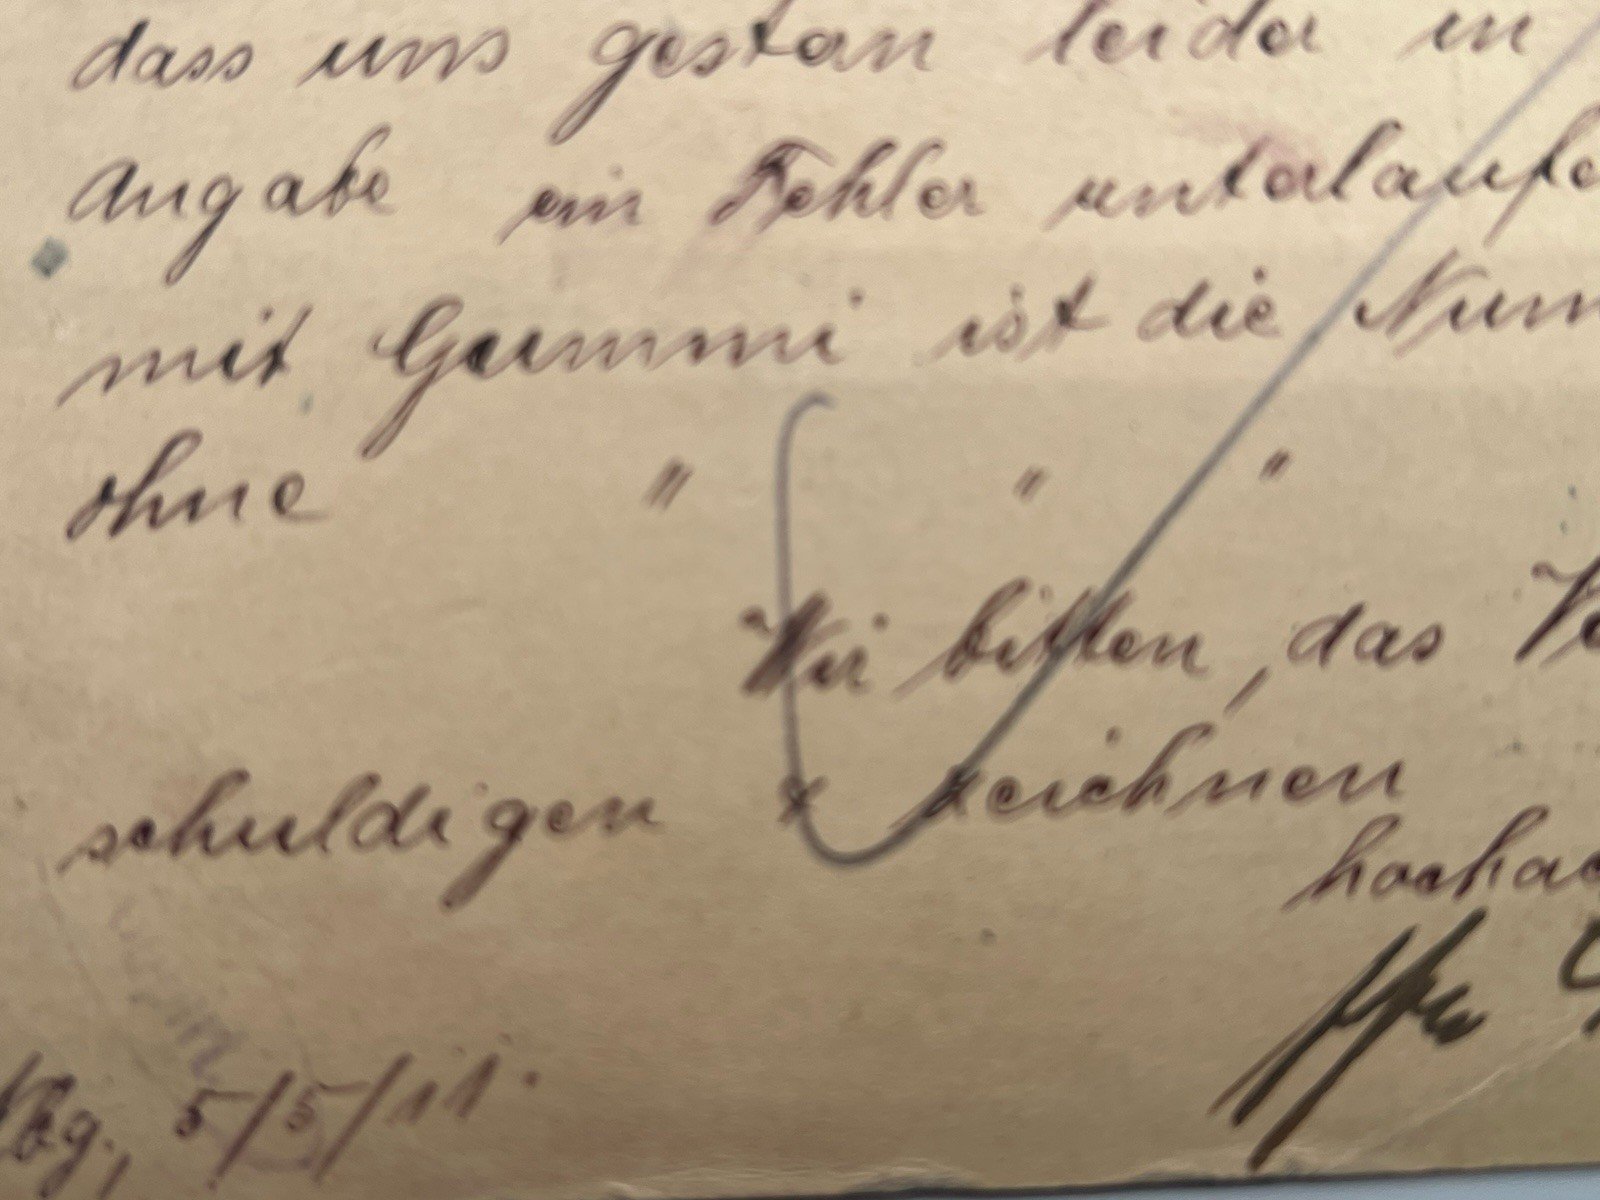 dass uns gestern leider in
Angabe ein Fehler unterlaufe
mit Gummi ist die Num
ohne " " "
Wir bitten, das Ve
schuldigen & zeichnen
hochac
Nbg., 5/5/11.